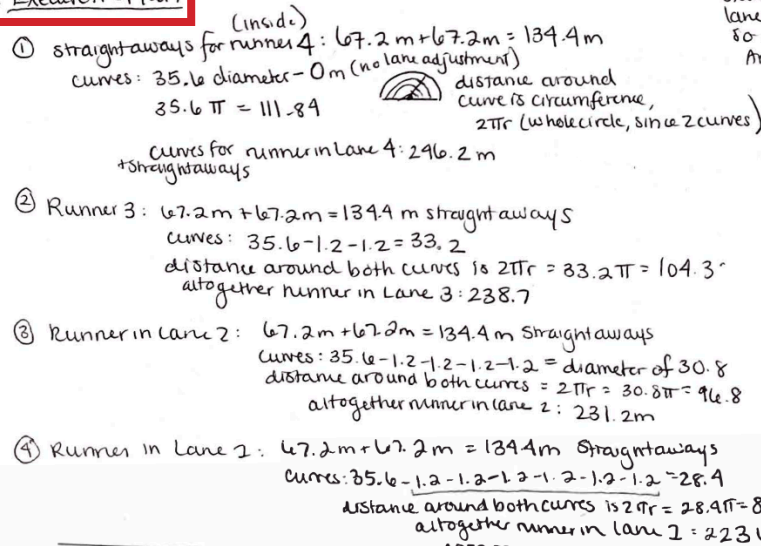 (inside)
① straightaways for runner 4: 67.2 m + 67.2m = 134.4m
curves: 35.6 diameter - 0m (no lane adjustment)
35.6 π = 111.84
distance around
curve is circumference,
2πr (whole circle, since 2 curves)
lane
so
curves for runner in Lane 4: 246.2 m
+straightaways
② Runner 3: 67.2m + 67.2m = 134.4 m straight aways
curves: 35.6-1.2-1.2 = 33.2
distance around both curves is 2πr = 33.2π = 104.3
altogether runner in Lane 3: 238.7
③ Runner in lane 2: 67.2m + 67.2m = 134.4m Straightaways
curves: 35.6-1.2-1.2-1.2-1.2 = diameter of 30.8
distance around both curves = 2πr = 30.8π = 96.8
altogether runner in lane 2: 231.2m
④ Runner in Lane 1: 67.2m + 67.2m = 134.4m Straightaways
curves: 35.6-1.2-1.2-1.2-1.2-1.2-1.2 = 28.4
distance around both curves is 2πr = 28.4π = 8
altogether runner in lane 1: 223